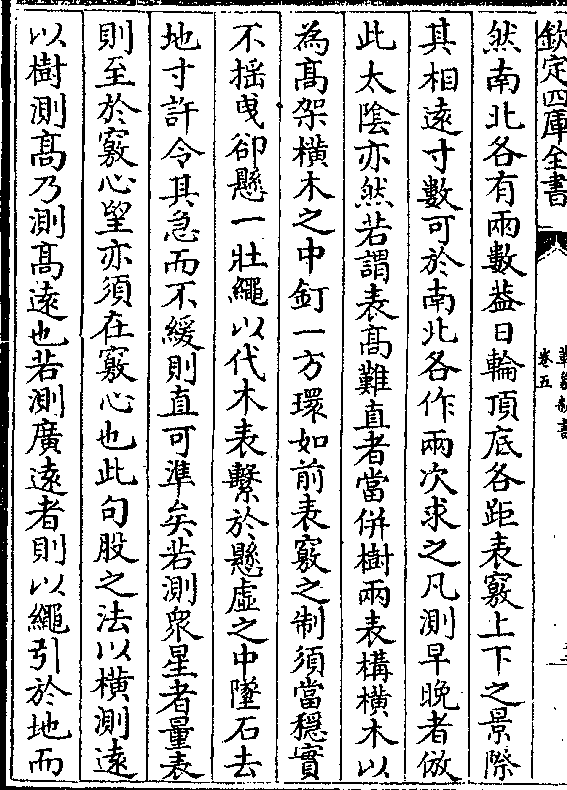 欽定四庫全書
卷五
然南北各有兩數葢日輪頂底各距表竅上下之景際
其相逺寸數可於南北各作兩次求之凡測早晚者倣
此太隂亦然若謂表髙難直者當併樹兩表構橫木以
為髙架橫木之中釘一方環如前表竅之制須當穩實
不揺曵卻懸一壯繩以代木表繫於懸虚之中墜石去
地寸許令其急而不緩則直可準矣若測衆星者量表
則至於竅心望亦須在竅心也此句股之法以橫測逺
以樹測髙乃測髙逺也若測廣逺者則以繩引於地而